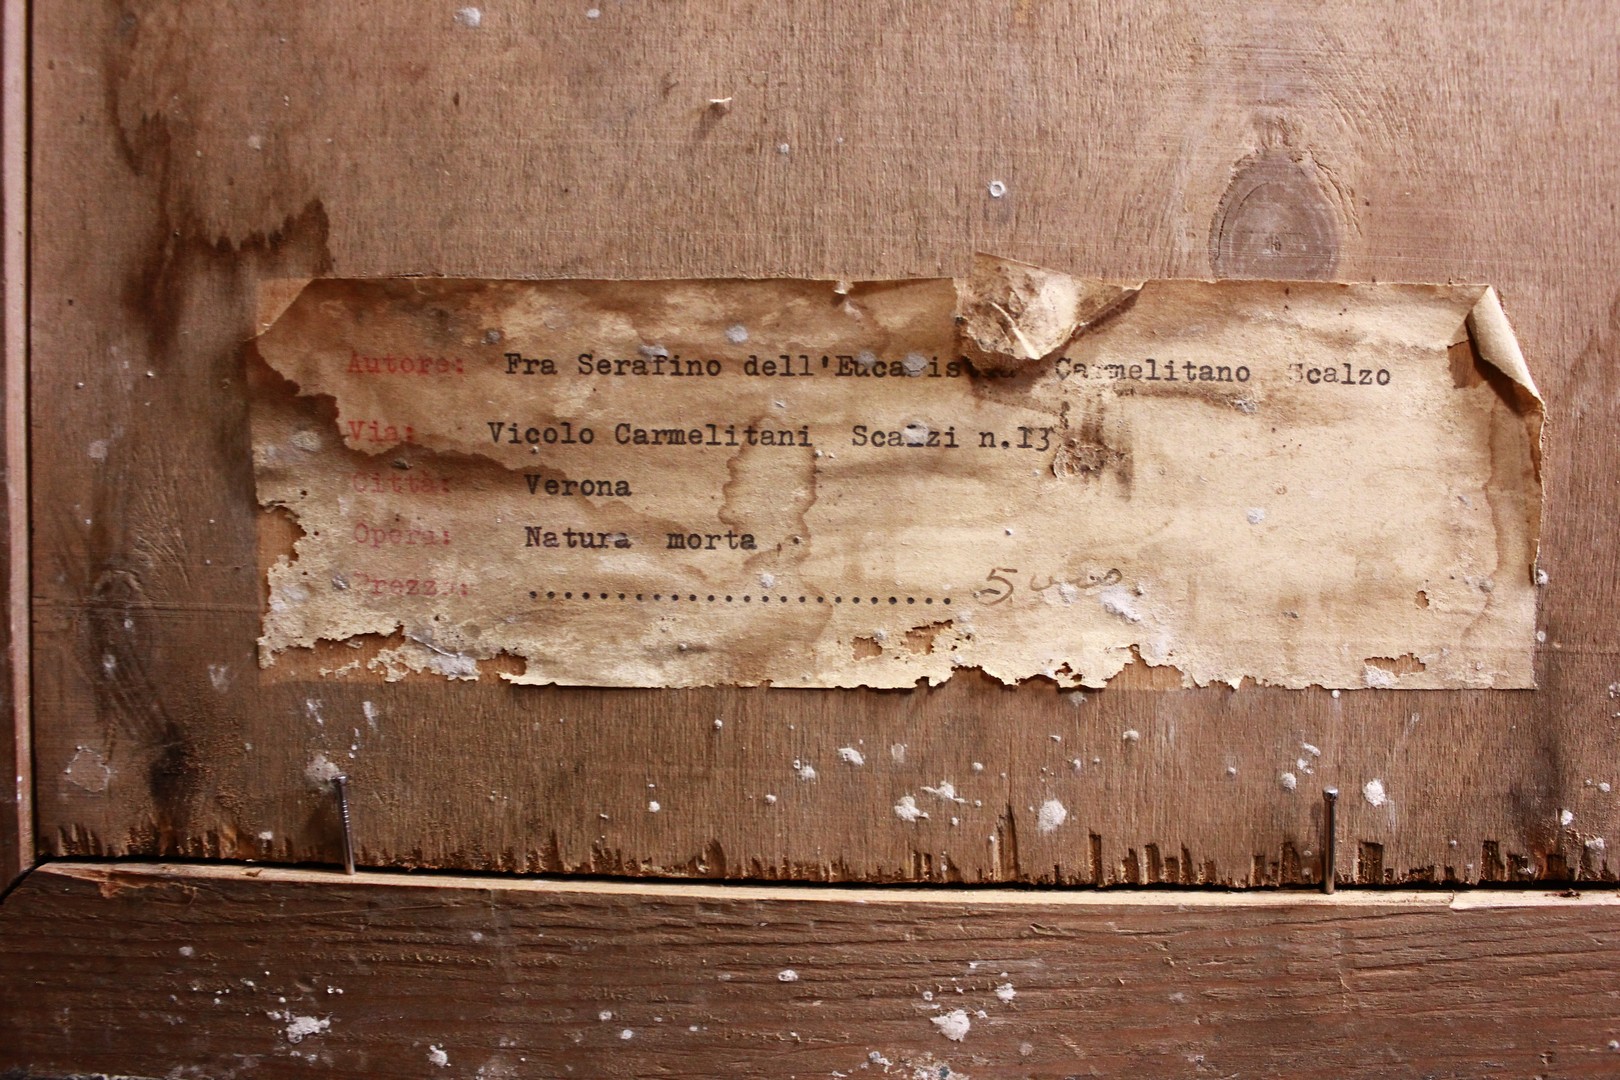 Autore: Fra Serafino dell'Eucaristia Carmelitano Scalzo
Via: Vicolo Carmelitani Scalzi n.13
Città: Verona
Opera: Natura morta
Prezzo: ........................